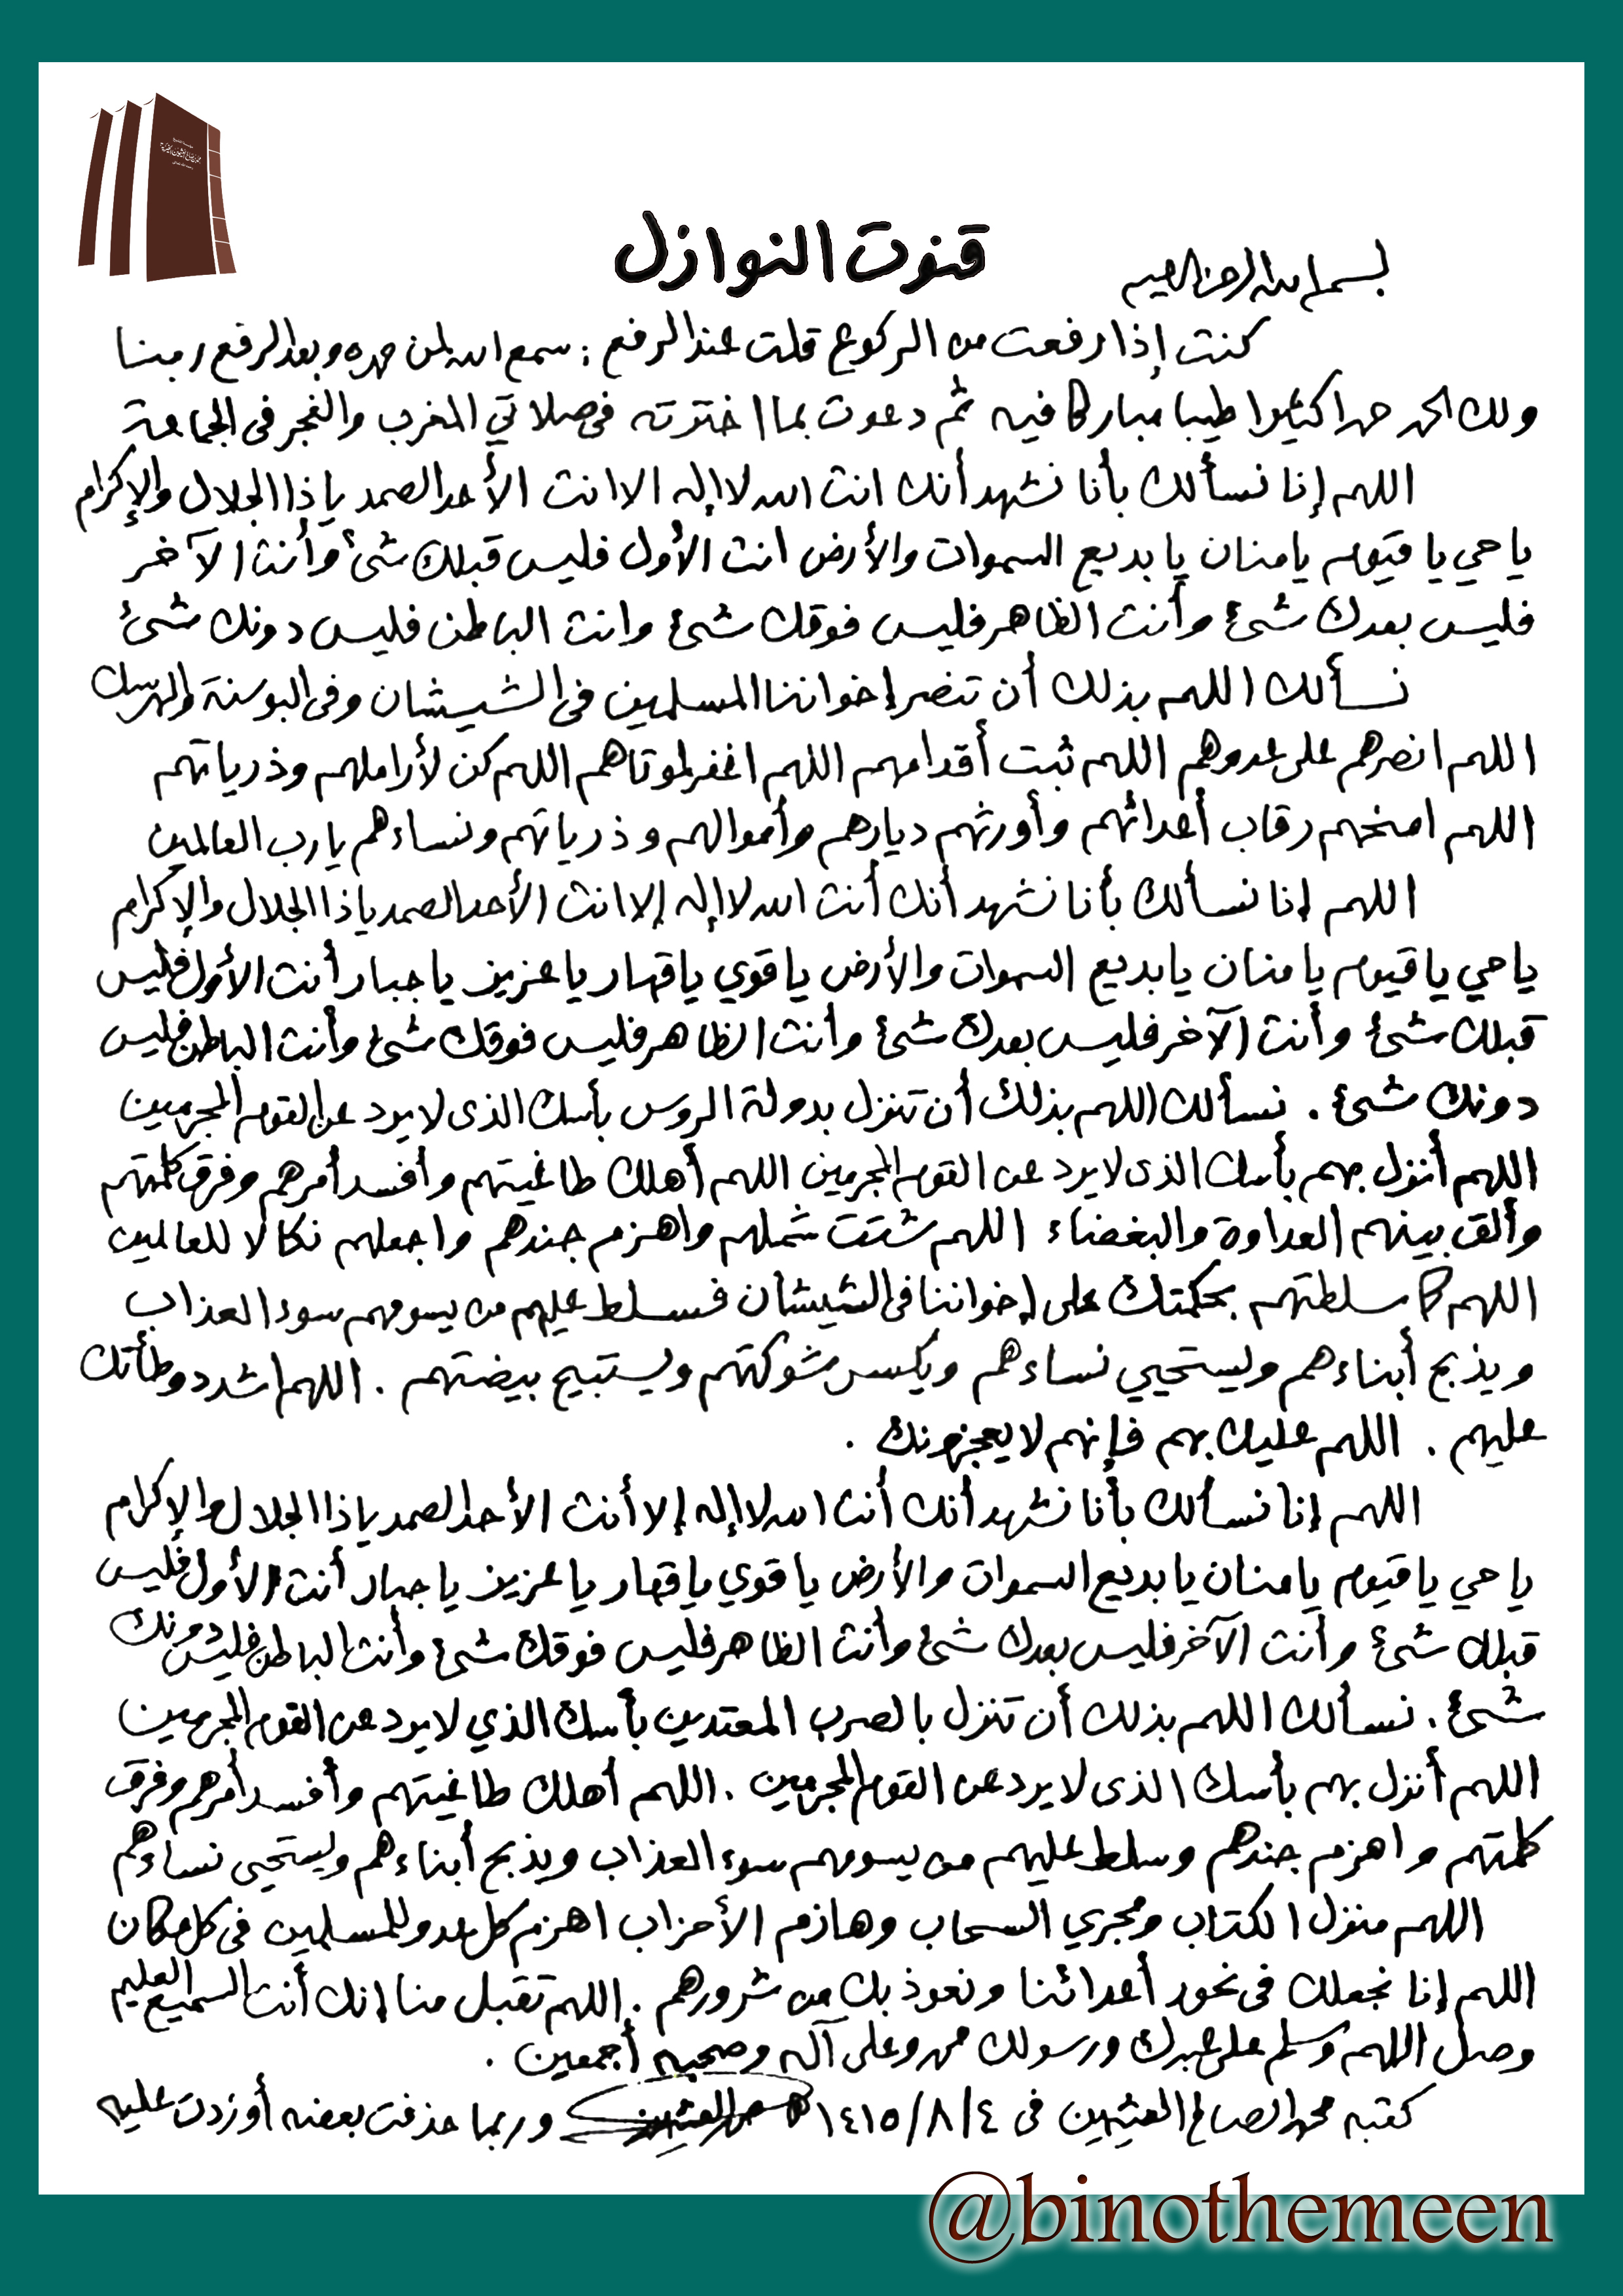 قنوت النوازل
بسم الله الرحمن الرحيم
كنت إذا رفعت من الركوع قلت عند الرفع : سمع الله لمن حمده وبعد الرفع ربنا
ولك الحمد حمدا كثيرا طيبا مباركا فيه ثم دعوت بما اخترته في صلاتي المغرب والفجر في الجماعة
اللهم إنا نسألك بأنا نشهد أنك انت الله لا إله الا انت الأحد الصمد يا ذا الجلال والإكرام
يا حي يا قيوم يا منان يا بديع السموات والأرض انت الأول فليس قبلك شئ وأنت الآخر
فليس بعدك شئ وأنت الظاهر فليس فوقك شئ وانت الباطن فليس دونك شئ
نسألك اللهم بذلك أن تنصر إخواننا المسلمين في الشيشان وفي البوسنة والهرسك
اللهم انصرهم على عدوهم اللهم ثبت أقدامهم اللهم اغفر لموتاهم اللهم كن لأراملهم وذرياتهم
اللهم امنحهم رقاب أعدائهم وأورثهم ديارهم وأموالهم وذرياتهم ونساءهم يا رب العالمين
اللهم إنا نسألك بأنا نشهد أنك أنت الله لا إله إلا انت الأحد الصمد يا ذا الجلال والإكرام
يا حي يا قيوم يا منان يا بديع السموات والأرض يا قوي يا قهار يا عزيز يا جبار أنت الأول فليس
قبلك شئ وأنت الآخر فليس بعدك شئ وأنت الظاهر فليس فوقك شئ وأنت الباطن فليس
دونك شئ . نسألك اللهم بذلك أن تنزل بدولة الروس بأسك الذى لا يرد عن القوم المجرمين
اللهم أنزل بهم بأسك الذى لا يرد عن القوم المجرمين اللهم أهلك طاغيتهم وأفسد أمرهم وفرق كلمتهم
وألق بينهم العداوة والبغضاء اللهم شتت شملهم واهزم جندهم واجعلهم نكالا للعالمين
اللهم كما سلطتهم بحكمتك على إخواننا في الشيشان فسلط عليهم من يسومهم سوء العذاب
ويذبح أبناءهم ويستحيي نساءهم ويكسر شوكتهم ويستبيح بيضتهم . اللهم اشدد وطأتك
عليهم . اللهم عليك بهم فإنهم لا يعجزونك .
اللهم إنا نسألك بأنا نشهد أنك أنت الله لا إله إلا أنت الأحد الصمد يا ذا الجلال والإكرام
يا حي يا قيوم يا منان يا بديع السموات والأرض يا قوي يا قهار يا عزيز يا جبار أنت الأول فليس
قبلك شئ وأنت الآخر فليس بعدك شئ وأنت الظاهر فليس فوقك شئ وأنت الباطن فليس دونك
شئ . نسألك اللهم بذلك أن تنزل بالصرب المعتدين بأسك الذي لا يرد عن القوم المجرمين
اللهم أنزل بهم بأسك الذى لا يرد عن القوم المجرمين . اللهم أهلك طاغيتهم وأفسد أمرهم وفرق
كلمتهم واهزم جندهم وسلط عليهم من يسومهم سوء العذاب ويذبح أبناءهم ويستحيى نساءهم
اللهم منزل الكتاب ومجري السحاب وهازم الأحزاب اهزم كل عدو للمسلمين في كل مكان
اللهم إنا نجعلك في نحور أعدائنا ونعوذ بك من شرورهم . اللهم تقبل منا إنك أنت السميع العليم
وصل اللهم وسلم على عبدك ورسولك محمد وعلى آله وصحبه أجمعين .
كتبه محمد الصالح العثيمين في ١٤١٥/٨/٤ وربما حذفت بعضه أو زدت عليه
@binothemeen